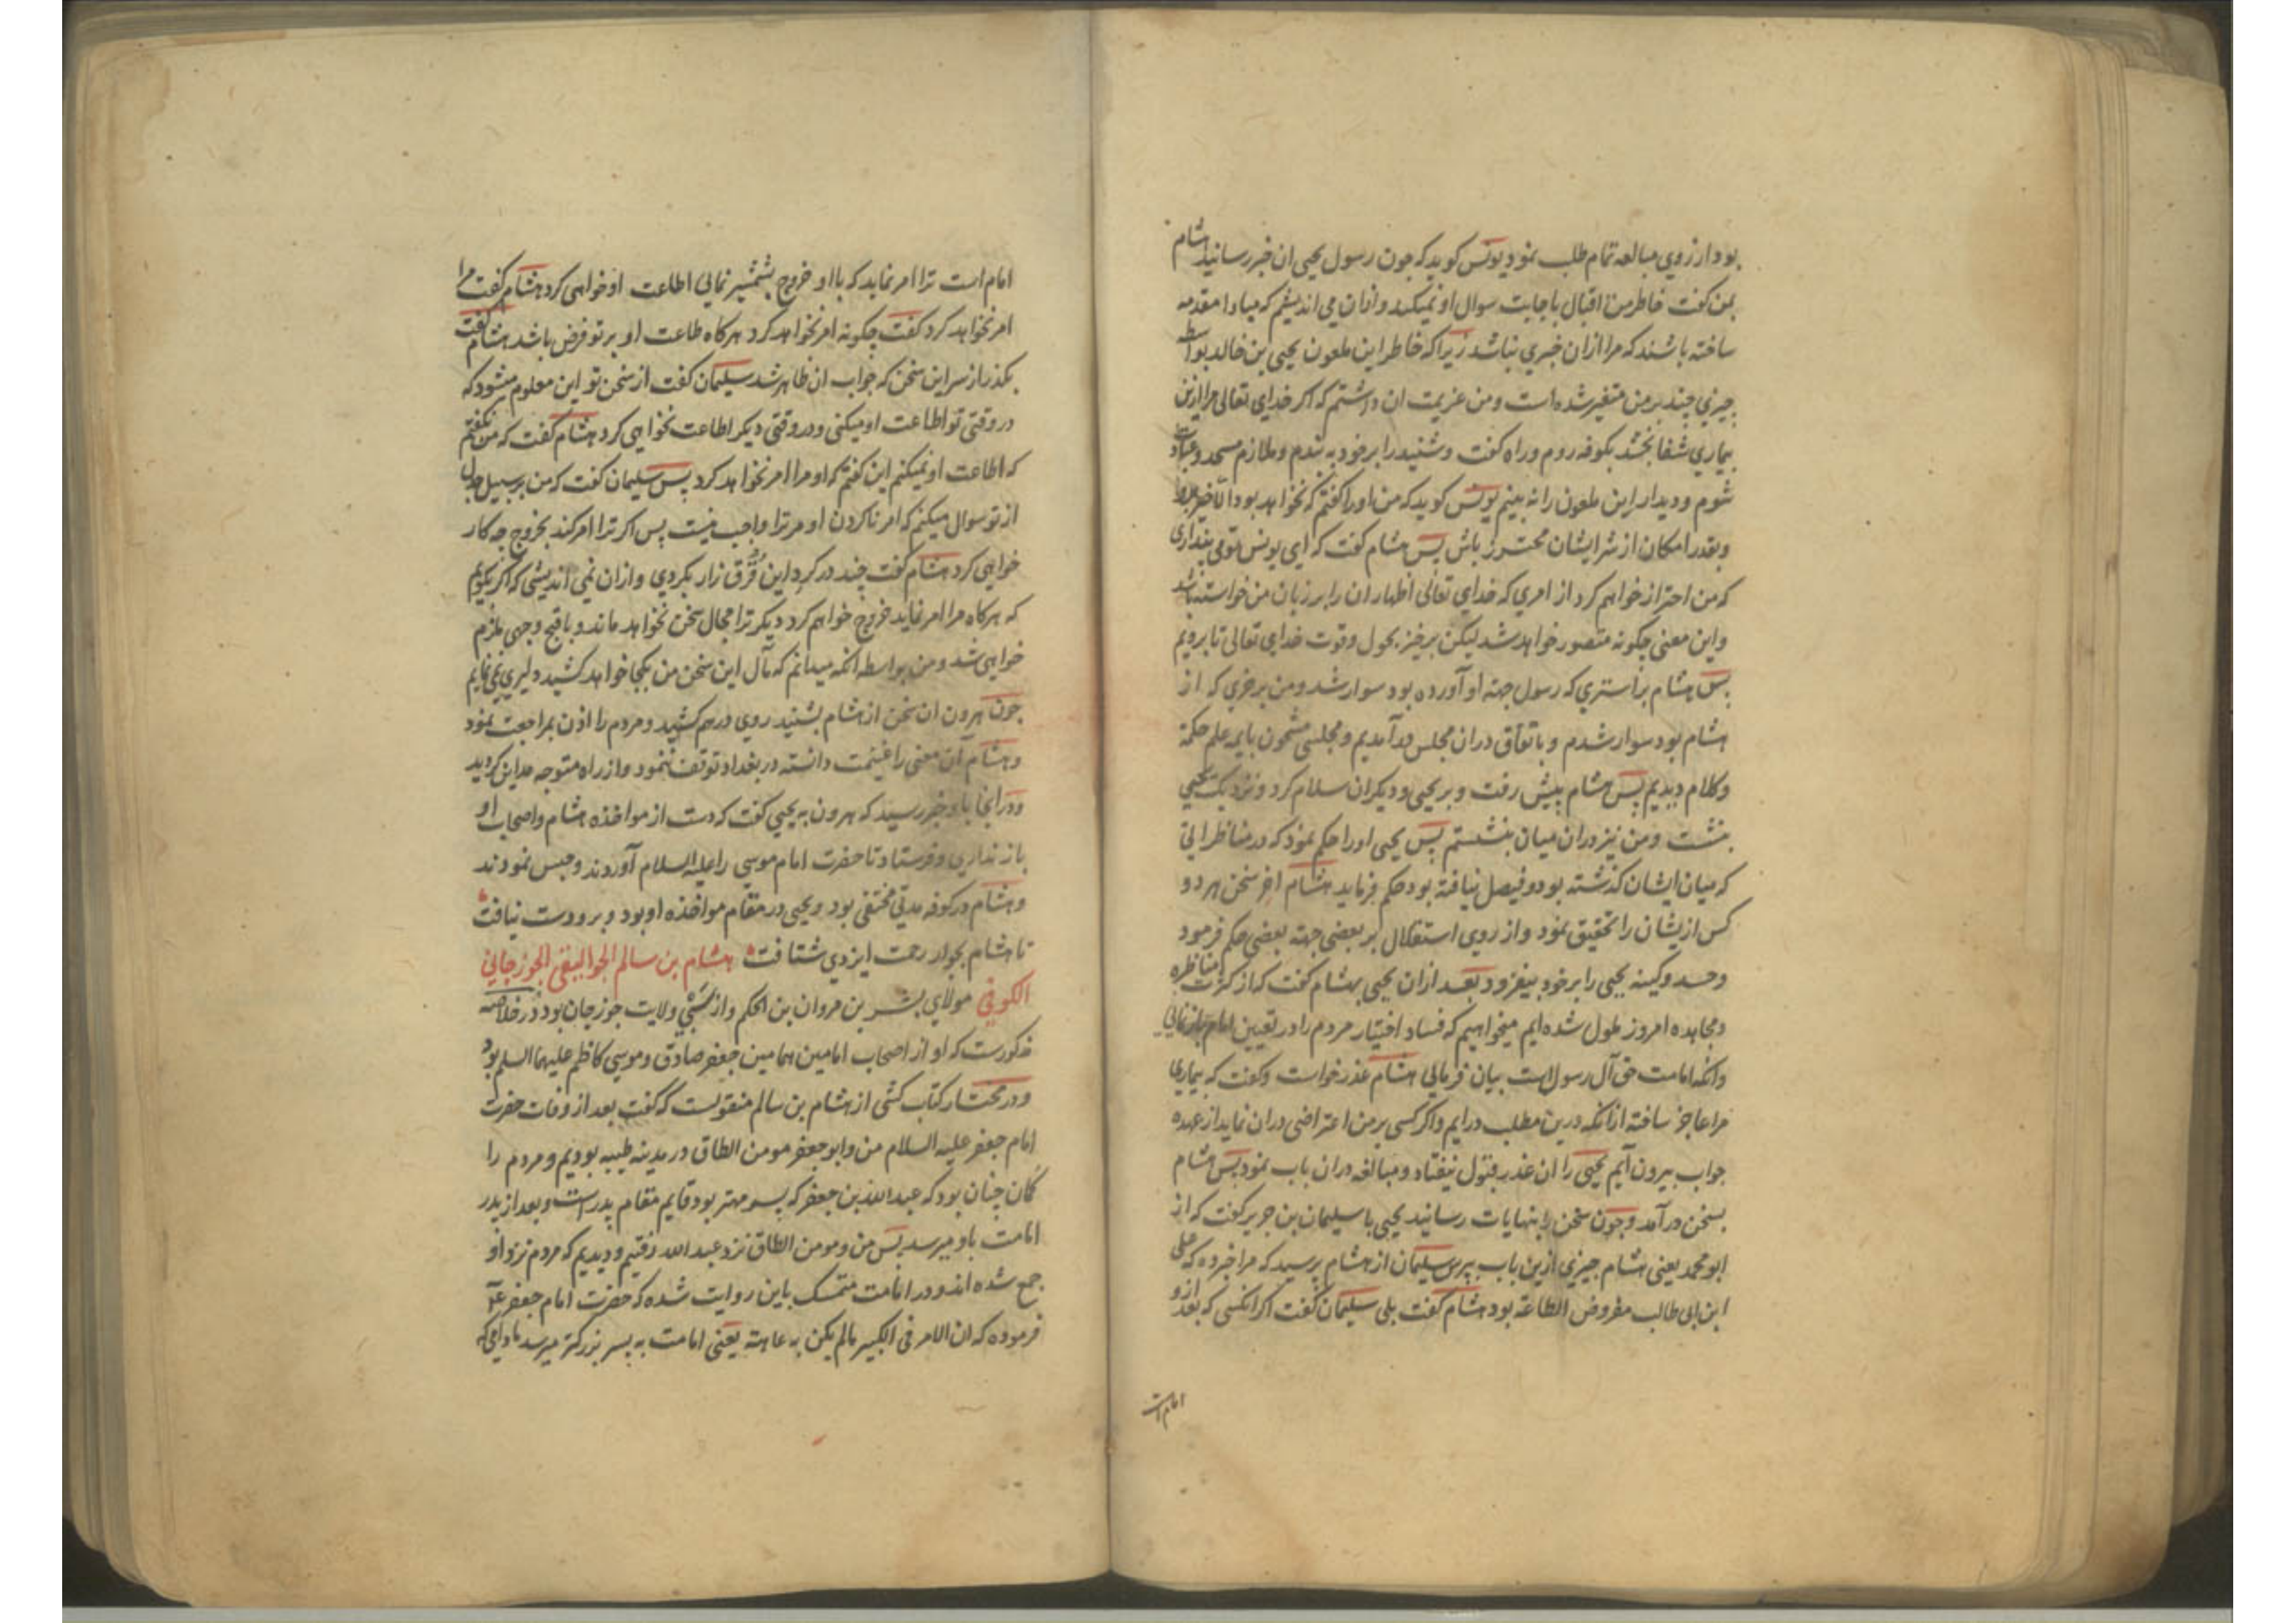 بود از روی مبالغه تمام طلب نمود یونس کوید که جون رسول یحیی ان خبر رسانید هشام
بمن کفت خاطر من اقبال باجابت سوال او نمیکند و ازان می اندیشم که مبادا مقدمه
ساخته باشند که مرا ازان خبری نباشد زیرا که خاطر این ملعون یحیی بن خالد بواسطه
جیزی جند بر من متغیر شده است و من عزیمت ان داشتم که اکر خدای تعالی مرا ازین
بیماری شفا بخشد بکوفه روم و راه کفت و شنید را بر خود به بندم و ملازم مسجد و عبادت
شوم و دیدار این ملعون را نه بینم یونس کوید که من او را کفتم که نخواهد بود الا خیر
و بقدر امکان از شر ایشان محترز باش پس هشام کفت که ای یونس تو می پنداری
که من احتراز خواهم کرد از امری که خدای تعالی اظهار ان را بر زبان من خواسته باشد
و این معنی جکونه متصور خواهد شد لیکن برخیز بحول و قوت خدای تعالی تا برویم
پس هشام بر استری که رسول جهته او آورده بود سوار شد و من بر خری که از
هشام بود سوار شدم و باتفاق دران مجلس درآمدیم و مجلسی مشحون بایمه علم حکمة
و کلام دیدیم پس هشام پیش رفت و بر یحیی و دیکران سلام کرد و نزدیک یحیی
بنشست و من نیز دران میان بنشستم پس یحیی او را حکم نمود که در مناظراتی
که میان ایشان کذشته بود و فیصل نیافته بود حکم فرماید هشام اخر سخن هر دو
کس از یشان را تحقیق نمود و از روی استقلال بر بعضی جهته بعضی حکم فرمود
و حسد و کینه یحیی را بر خود بیفزود بعد ازان یحیی بهشام کفت که از کثرت مناظره
و مجاهده امروز ملول شده ایم میخواهیم که فساد اختیار مردم را در تعیین امام بیان نمایی
و انکه امامت حق آل رسول است بیان فرمایی هشام عذر خواست و کفت که بیماری
مرا عاجز ساخته ازانکه درین مطلب درایم و اکر کسی بر من اعتراضی دران نماید از عهده
جواب بیرون آیم یحیی را ان عذر قبول نیفتاد و مبالغه دران باب نمود پس هشام
بسخن درآمد و جون سخن را بنهایات رسانید یحیی با سلیمان بن جریر کفت که از
ابو محمد یعنی هشام جیزی ازین باب بپرس سلیمان از هشام پرسید که مرا خبر ده که علی
ابن ابی طالب مفروض الطاعه بود هشام کفت بلی سلیمان کفت اکر انکسی که بعد از و
امام است
امام است ترا امر نماید که با او خروج بشمشیر نمایی اطاعت او خواهی کرد هشام کفت مرا
امر نخواهد کرد کفت جکونه امر نخواهد کرد هرکاه طاعت او بر تو فرض باشد هشام کفت
بکذر از سر این سخن که جواب ان ظاهر شد سلیمان کفت از سخن تو این معلوم میشود که
در وقتی تو اطاعت او میکنی و در وقتی دیکر اطاعت نخواهی کرد هشام کفت که من نکفتم
که اطاعت او نمیکنم این کفتم که او مرا امر نخواهد کرد پس سلیمان کفت که من بر سبیل جدل
از تو سوال میکنم که امر نا کردن او مر ترا واجب نیست پس اکر ترا امر کند بخروج جه کار
خواهی کرد هشام کفت جند در کرد این قرق زار بکردی و ازان نمی اندیشی که اکر بکویم
که هرکاه مرا امر نماید خروج خواهم کرد دیکر ترا مجال سخن نخواهد ماند و باقبح وجهی ملزم
خواهی شد و من بواسطه انکه میدانم که مآل این سخن من بکجا خواهد کشید دلیری نمی نمایم
جون هرون ان سخن از هشام بشنید روی درهم کشید و مردم را اذن بمراجعت نمود
و هشام آن معنی را غنیمت دانسته در بغداد توقف ننمود و از راه متوجه مداین کردید
و در انجا باو خبر رسید که هرون به یحیی کفت که دست از مواخذه هشام و اصحاب او
باز نداری و فرستاد تا حضرت امام موسی را علیه السلام آوردند و حبس نمودند
و هشام در کوفه مدتی مختفی بود و یحیی در مقام مواخذه او بود و برو دست نیافت
تا هشام بجوار رحمت ایزدی شتافت هشام بن سالم الجوالیقی الجوزجانی
الکوفی مولای بشر بن مروان بن الحکم و از سبی ولایت جوزجان بود در خلاصه
مذکورست که او از اصحاب امامین همامین جعفر صادق و موسی کاظم علیهما السلم بود
و در مختار کتاب کشی از هشام بن سالم منقولست که کفت بعد از وفات حضرت
امام جعفر علیه السلام من و ابو جعفر مومن الطاق در مدینه طیبه بودیم و مردم را
کمان چنان بود که عبد الله بن جعفر که پسر مهتر بود قایم مقام پدر است و بعد از پدر
امامت باو میرسد پس من و مومن الطاق نزد عبد الله رفتیم و دیدیم که مردم نزد او
جمع شده اند و در امامت متمسک باین روایت شده که حضرت امام جعفر ع
فرموده که ان الامر فی الکبیر مالم یکن به عاهة یعنی امامت به پسر بزرکتر میرسد مادامی که